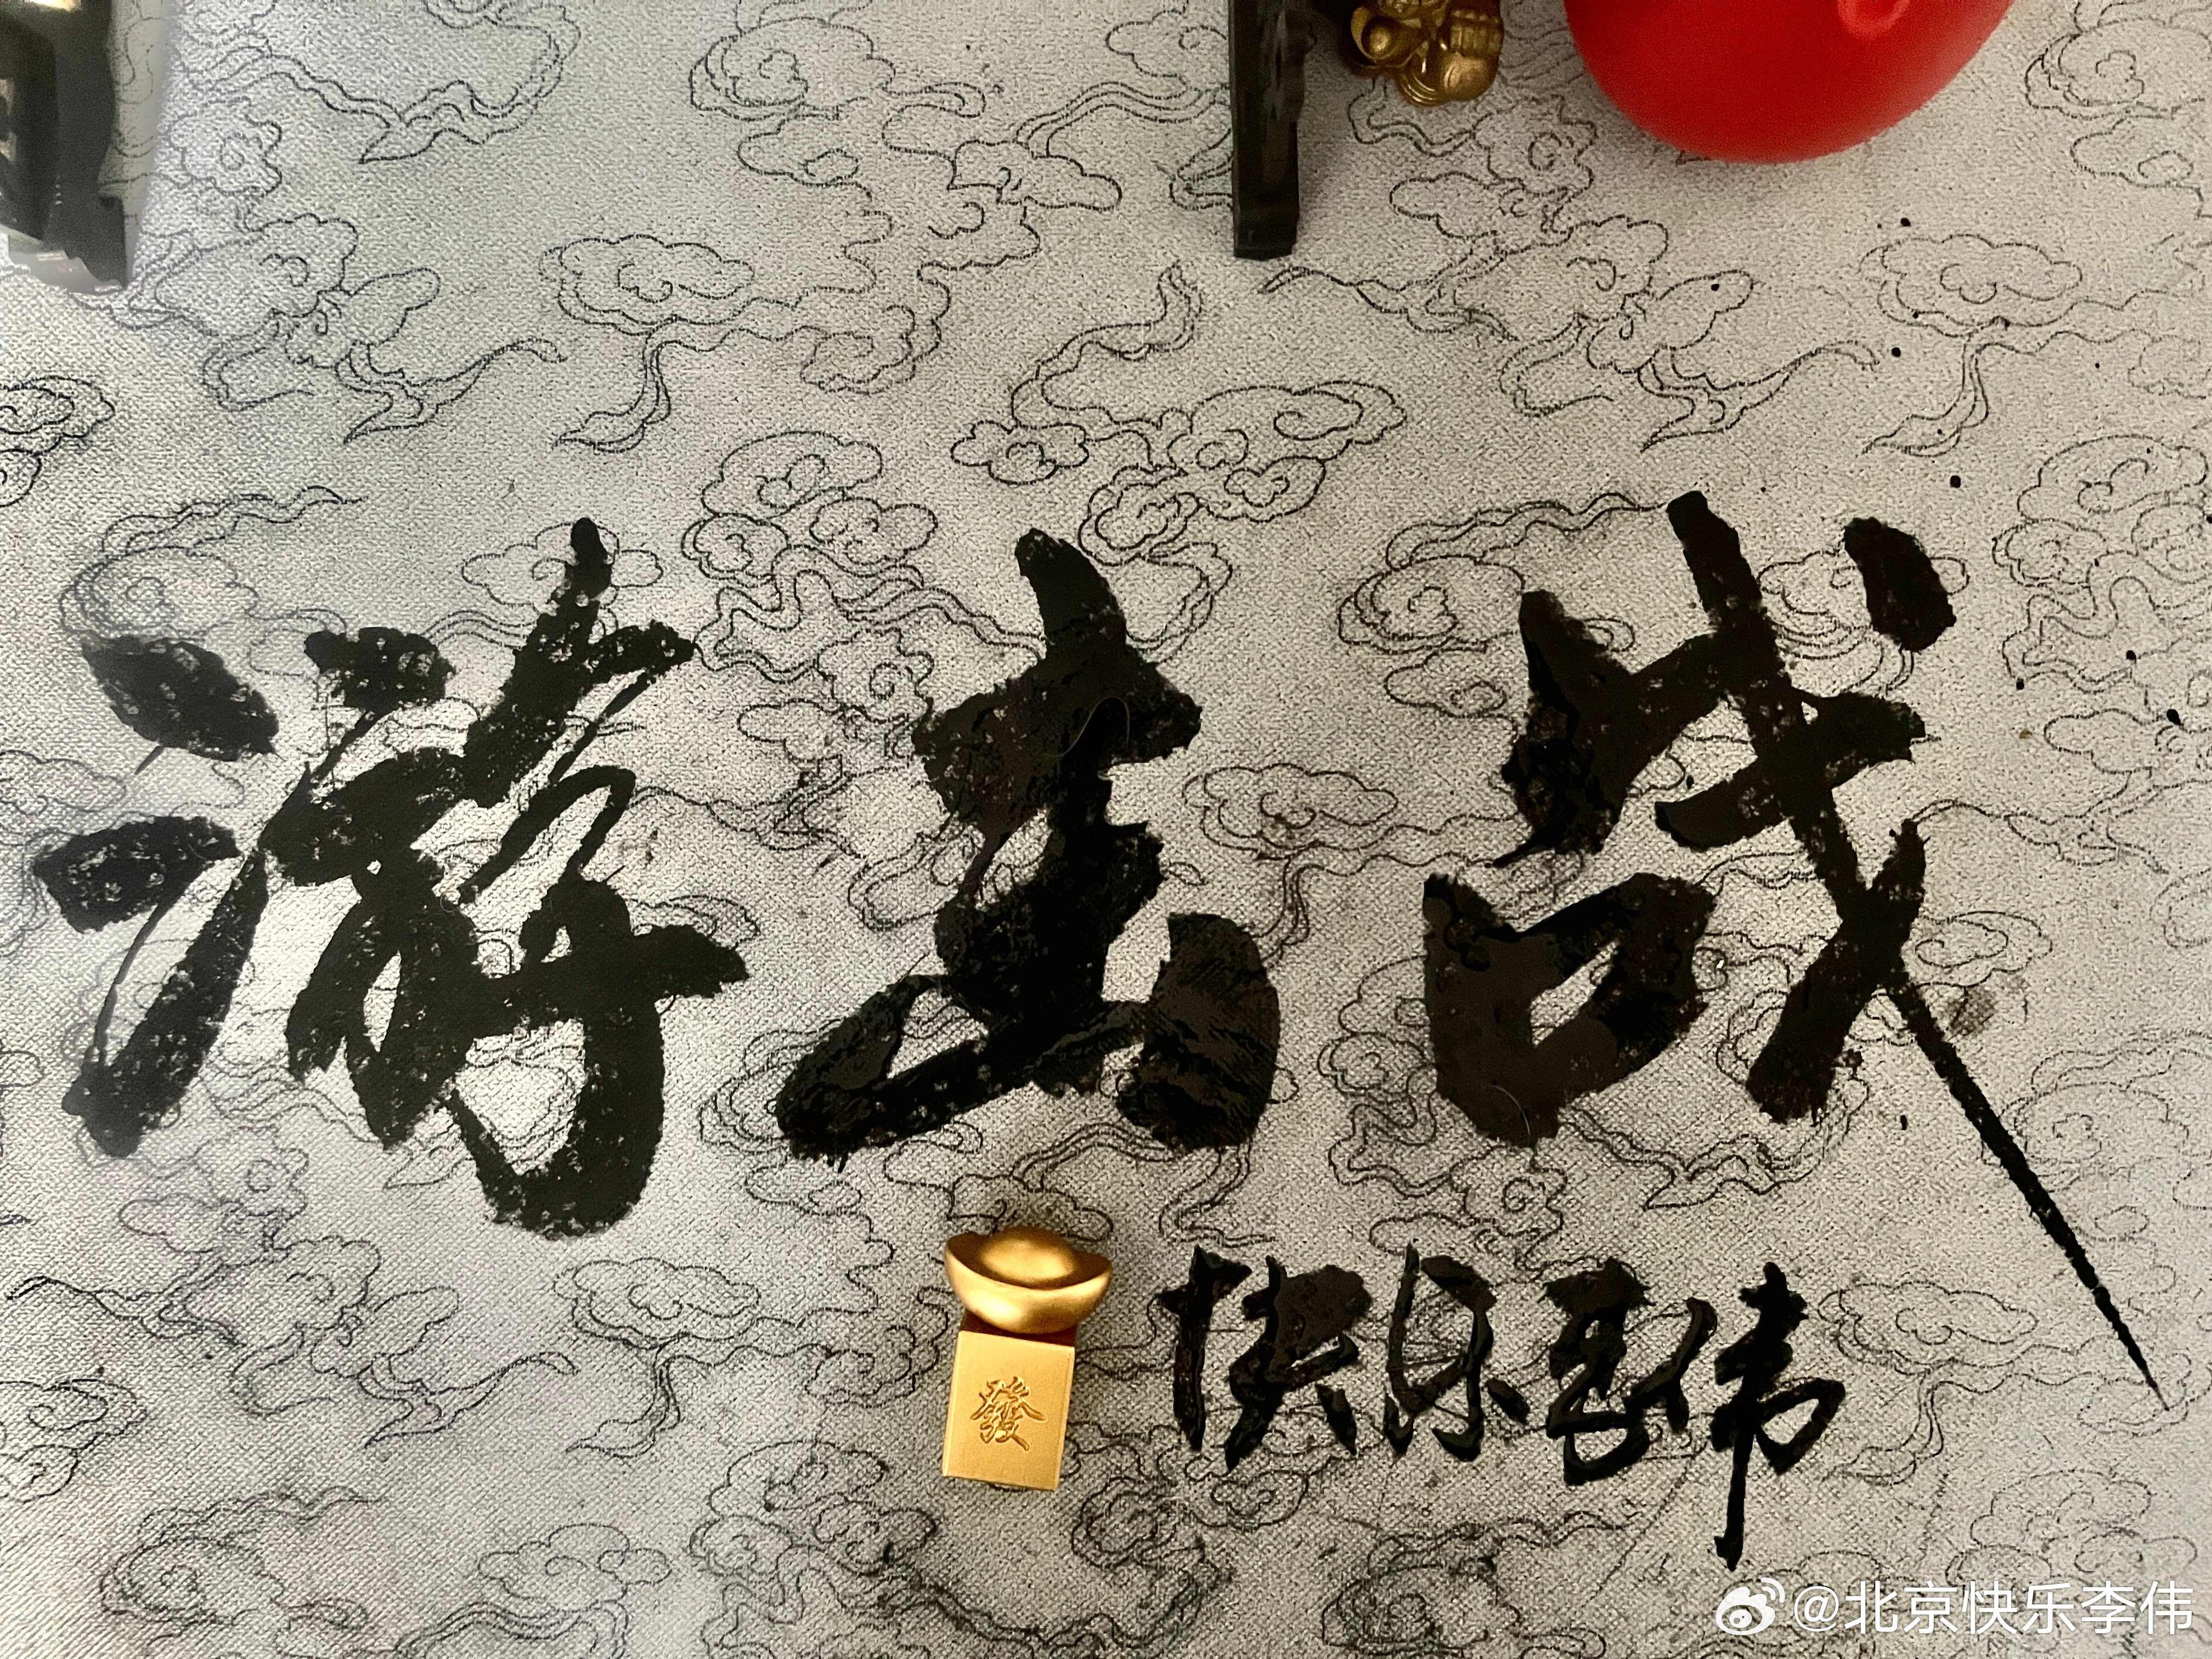 游击战
發
快乐李伟
@北京快乐李伟